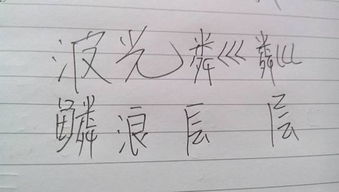 波光粼粼
鳞浪层层